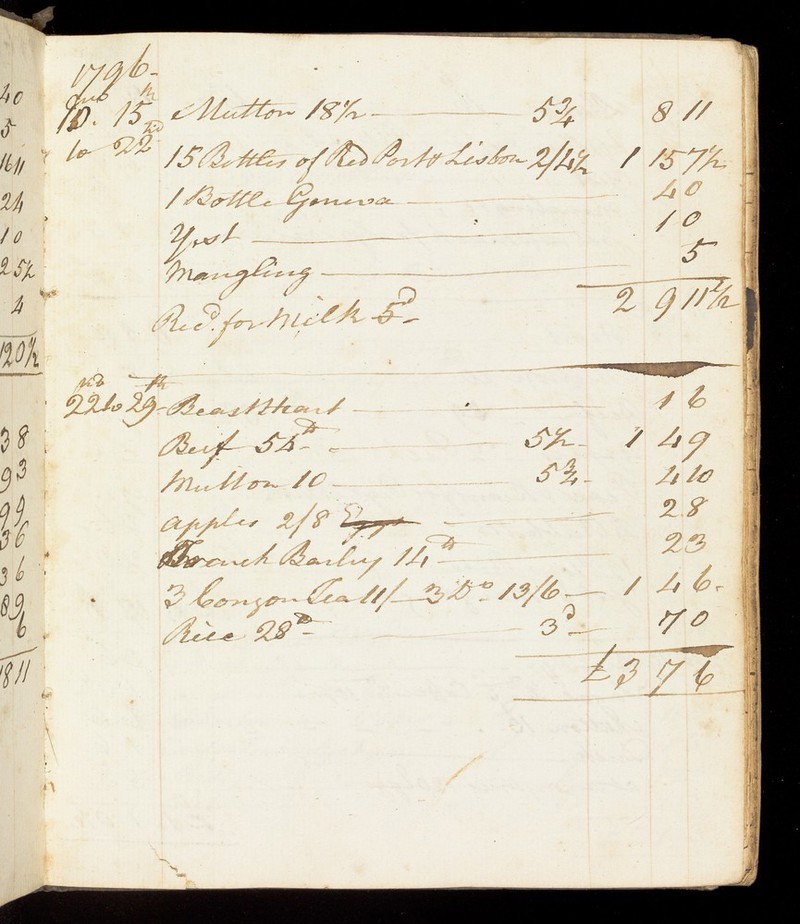 40
5
16 11
2 4
1 0
2 5½
4
1 20½
3 8
9 3
9 9
3 6
3 6
8 9
6
18 11
1796
15th Mutton 18½ 5¾ 8 11
to 22nd
15 Bottles of Red Port & Lisbon 2/4½ 1 15 7½
1 Bottle Geneva 4 0
Yest 1 0
Mangling 5
Recd. for Milk 5d 2 9 11½
22nd to 29th Beast Heart 1 6
Beef 54lb 5½ 1 4 9
Mutton 10 5¾ 4 10
apples 2/8 2 8
French Barley 14lb 2 3
3 Congou Tea 11/ 3 Do 13/6 1 4 6
Rice 28lb 3d 7 0
£ 3 7 6